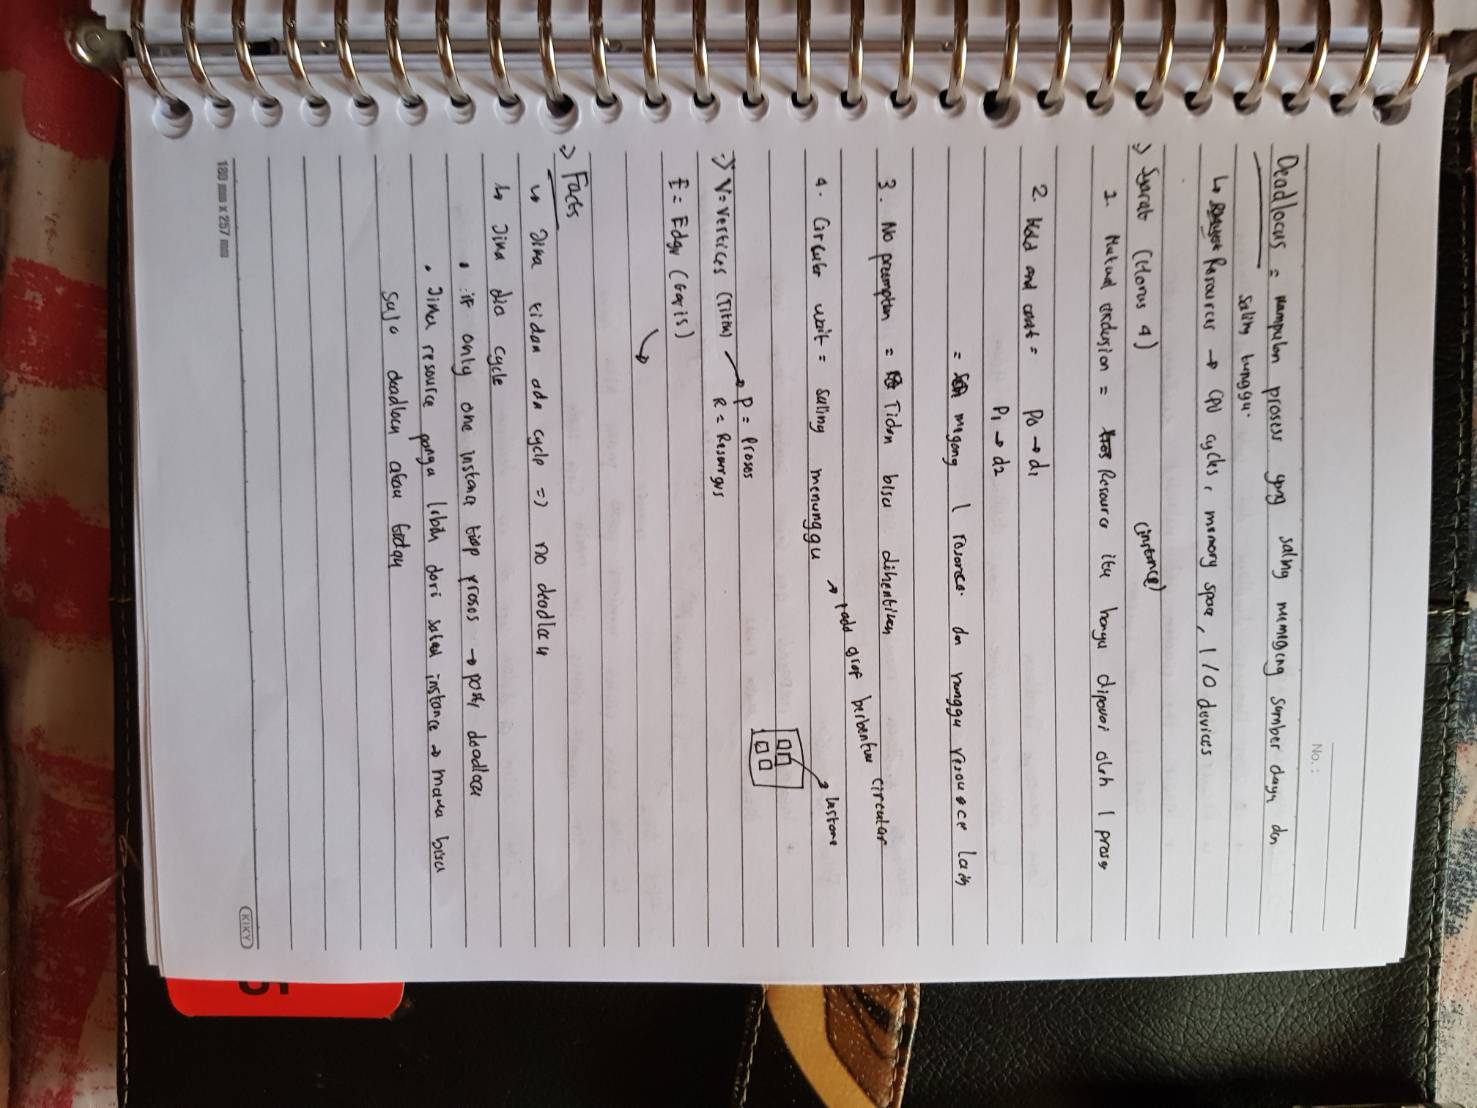 No. :
Deadlocks = kumpulan prosess yang saling memegang sumber daya dan
saling tunggu.
↳ Resources → CPU cycles, memory space, I/O devices
⇒ Syarat (Harus 4)
(instance)
1. Mutual exclusion = Resource itu hanya dipakai oleh 1 proses
2. Hold and wait = P0 → d1
P1 → d2
= megang 1 resource dan nunggu resource lain
3. No preemption = Tidak bisa dihentikan
4. Circular wait = saling menunggu → pada graf berbentuk circular
Instance
⇒ V = Vertices (Titik) → P = Proses
R = Resources
E = Edge (Garis)
⇒ Facts
↳ Jika tidak ada cycle => no deadlock
↳ Jika dia cycle
• if only one instance tiap proses → pasti deadlock
• Jika resource punya lebih dari satu instance → maka bisa
saja deadlock atau tidak
KIKY
180 mm x 257 mm